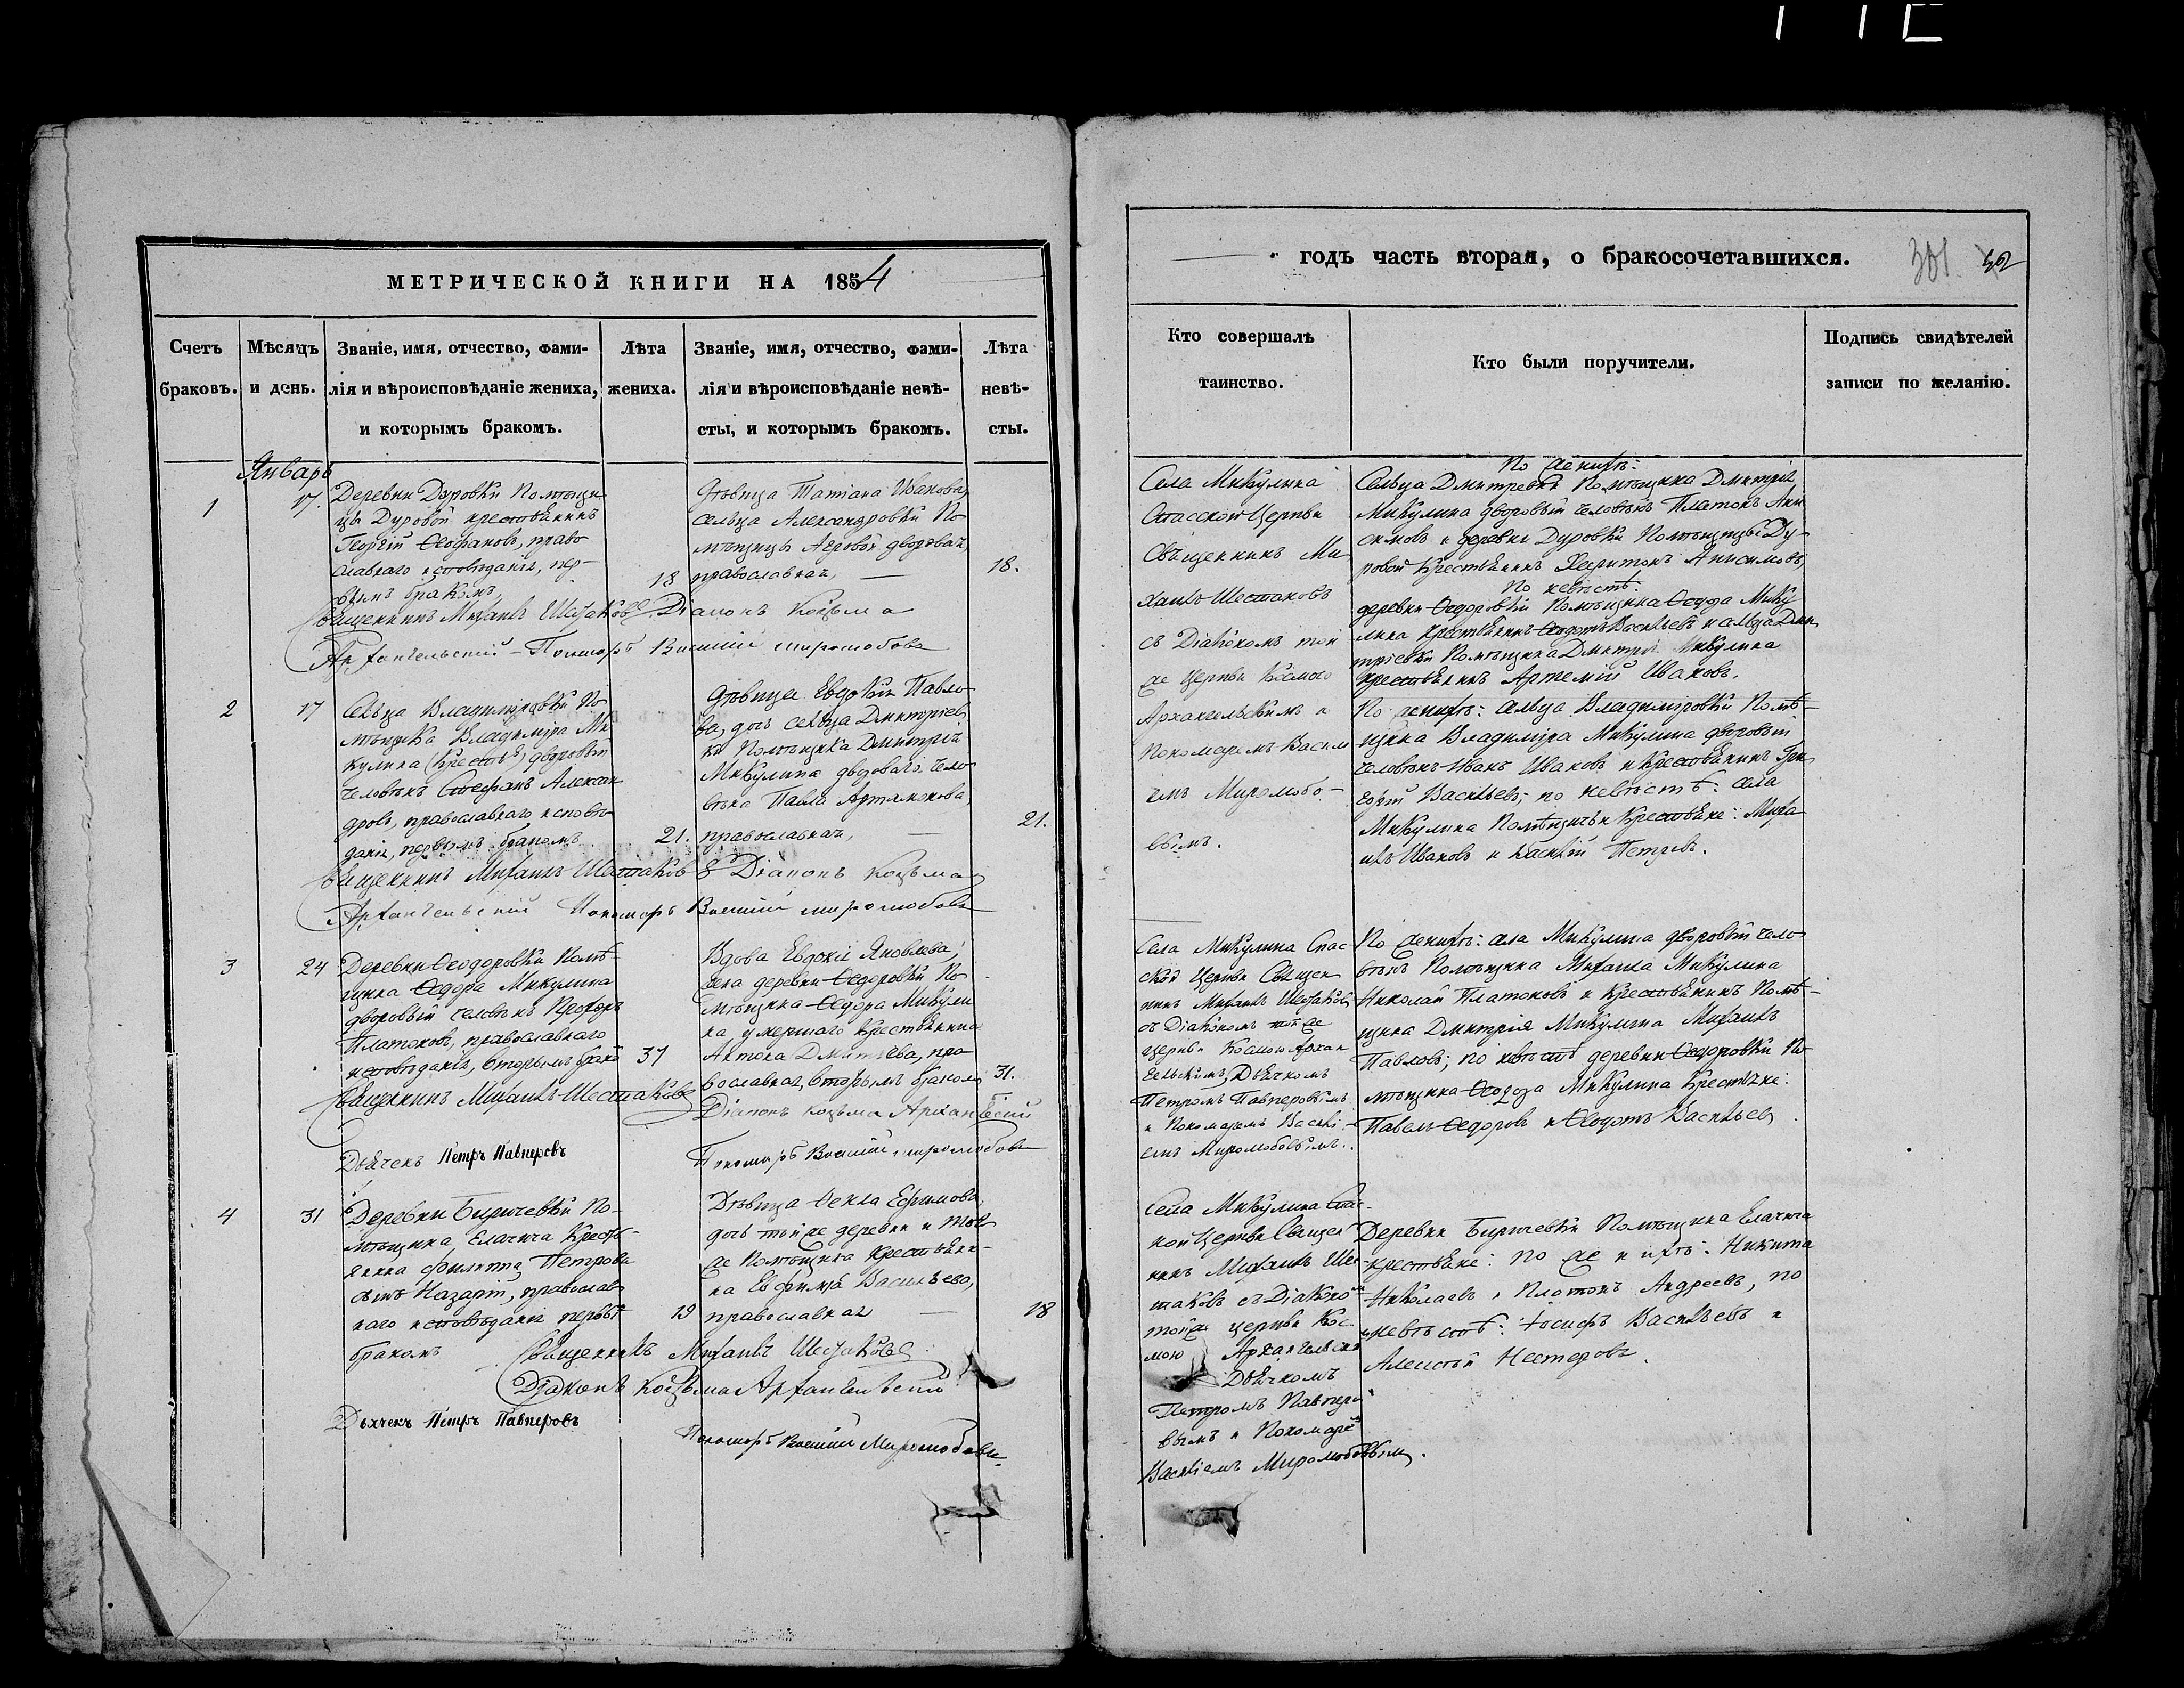 МЕТРИЧЕСКОЙ КНИГИ НА 1854
Счетъ браковъ.
Мѣсяцъ и день.
Званіе, имя, отчество, фами-
лія и вѣроисповѣданіе жениха,
и которымъ бракомъ.
Лѣта жениха.
Званіе, имя, отчество, фами-
лія и вѣроисповѣданіе невѣ-
сты, и которымъ бракомъ.
Лѣта невѣ-
сты.
Январь
1
17.
Деревни Дуровки Помѣщи
цы Дуровой крестьянинъ
Георгій Ѳеофановъ, право
славнаго исповѣданія, пер-
вымъ бракомъ,
18
Дѣвица Татіана Иванова,
сельца Александровки По
мѣщицы дворовая,
православная,
18.
Священникъ Михаилъ Шестаковъ. Діаконъ Козьма
Архангельскій – Пономарь Василій Миролюбовъ
2
17
Сельца Владиміровки По
мѣщика Владиміра Ми
кулина (Крестья) дворовый
человѣкъ Стефанъ Алексан
дровъ, православнаго исповѣ
данія, первымъ бракомъ
21.
Дѣвица Евдокія Павло
ва, дочь сельца Дмитріев
ки Помѣщика Дмитрія
Микулина двороваго чело
вѣка Павла Артамонова,
православная,
21.
Священникъ Михаилъ Шестаковъ Діаконъ Козьма
Архангельскій Пономарь Василій Миролюбовъ
3
24
Деревни Ѳеодоровки Помѣ
щика Ѳедора Микулина
дворовый человѣкъ Прохоръ
Платоновъ, православнаго
исповѣданія, вторымъ брако
37
Вдова Евдокія Яковлева,
жена деревни Ѳедоровки По
мѣщика Ѳедора Микули
на умершаго крестьянина
Антона Дмитріева, пра
вославная, вторымъ бракомъ
31.
Священникъ Михаилъ Шестаковъ
Діаконъ Козьма Архангельскій
Дьячекъ Петръ Павперовъ
Пономарь Василій Миролюбовъ
4
31
Деревни Биричевки По-
мѣщика Елагина Кресть-
янина Филиппа Петрова
сынъ Назарій, православ
наго исповѣданія первы
бракомъ
19
Дѣвица Ѳекла Ефимова,
дочь той же деревни и того
же Помѣщика крестьяни-
на Евфима Васильева,
православная
18
Священникъ Михаилъ Шестаковъ
Діаконъ Козьма Архангельскій
Дьячекъ Петръ Павперовъ
Пономарь Василій Миролюбовъ.
годъ часть вторая, о бракосочетавшихся.
301
Кто совершалъ
таинство.
Кто были поручители.
Подпись свидѣтелей
записи по желанію.
Села Микулина
Спасской Церкви
Священникъ Ми
хаилъ Шестаковъ
съ Діакономъ той
же церкви Космою
Архангельскимъ и
Пономаремъ Васил
іемъ Миролюбо-
вымъ.
По женихѣ:
Сельца Дмитревки Помѣщика Дмитрія
Микулина дворовый человѣкъ Платонъ Ани
симовъ и деревни Дуровки Помѣщицы Ду-
ровой Крестьянинъ Харитонъ Анисимовъ,
По невѣстѣ:
деревни Ѳедоровки Помѣщика Ѳедора Мику
лина крестьянинъ Ѳедотъ Васильевъ и сельца Дми
тріевки Помѣщика Дмитрія Микулина
крестьянинъ Артемій Ивановъ.
По женихѣ: сельца Владиміровки Помѣ-
щика Владиміра Микулина дворовый
человѣкъ Иванъ Ивановъ и Крестьянинъ Гри
горій Васильевъ; по невѣстѣ: села
Микулина Помѣщичьи Крестьяне: Миха
илъ Ивановъ и Василій Петровъ.
Села Микулина Спас
ской Церкви Священ
никъ Михаилъ Шестаковъ
съ Діакономъ той же
Церкви Космою Архан
гельскимъ, Дьячкомъ
Петромъ Павперовымъ
и Пономаремъ Васил-
емъ Миролюбовымъ.
По женихѣ: села Микулина дворовый чело
вѣкъ Помѣщика Михаила Микулина
Николай Платоновъ и Крестьянинъ Помѣ-
щика Дмитрія Микулина Михаилъ
Павловъ; по невѣстѣ деревни Ѳедоровки По
мѣщика Ѳеодора Микулина Крестьяне:
Павелъ Ѳедоровъ и Ѳедотъ Васильевъ.
Села Микулина Спас-
кой Церкви Священ
никъ Михаилъ Ше-
стаковъ съ Діаконо
той же церкви Кос-
мою Архангельски
Дьячкомъ
Петромъ Павперо
вымъ и Пономаре
Василіемъ Миролюбовымъ.
Деревни Биричевки Помѣщика Елагина
крестьяне: по женихѣ: Никита
Николаевъ и Платонъ Андреевъ, по
невѣстѣ: Іосифъ Васильевъ и
Алексѣй Нестеровъ.